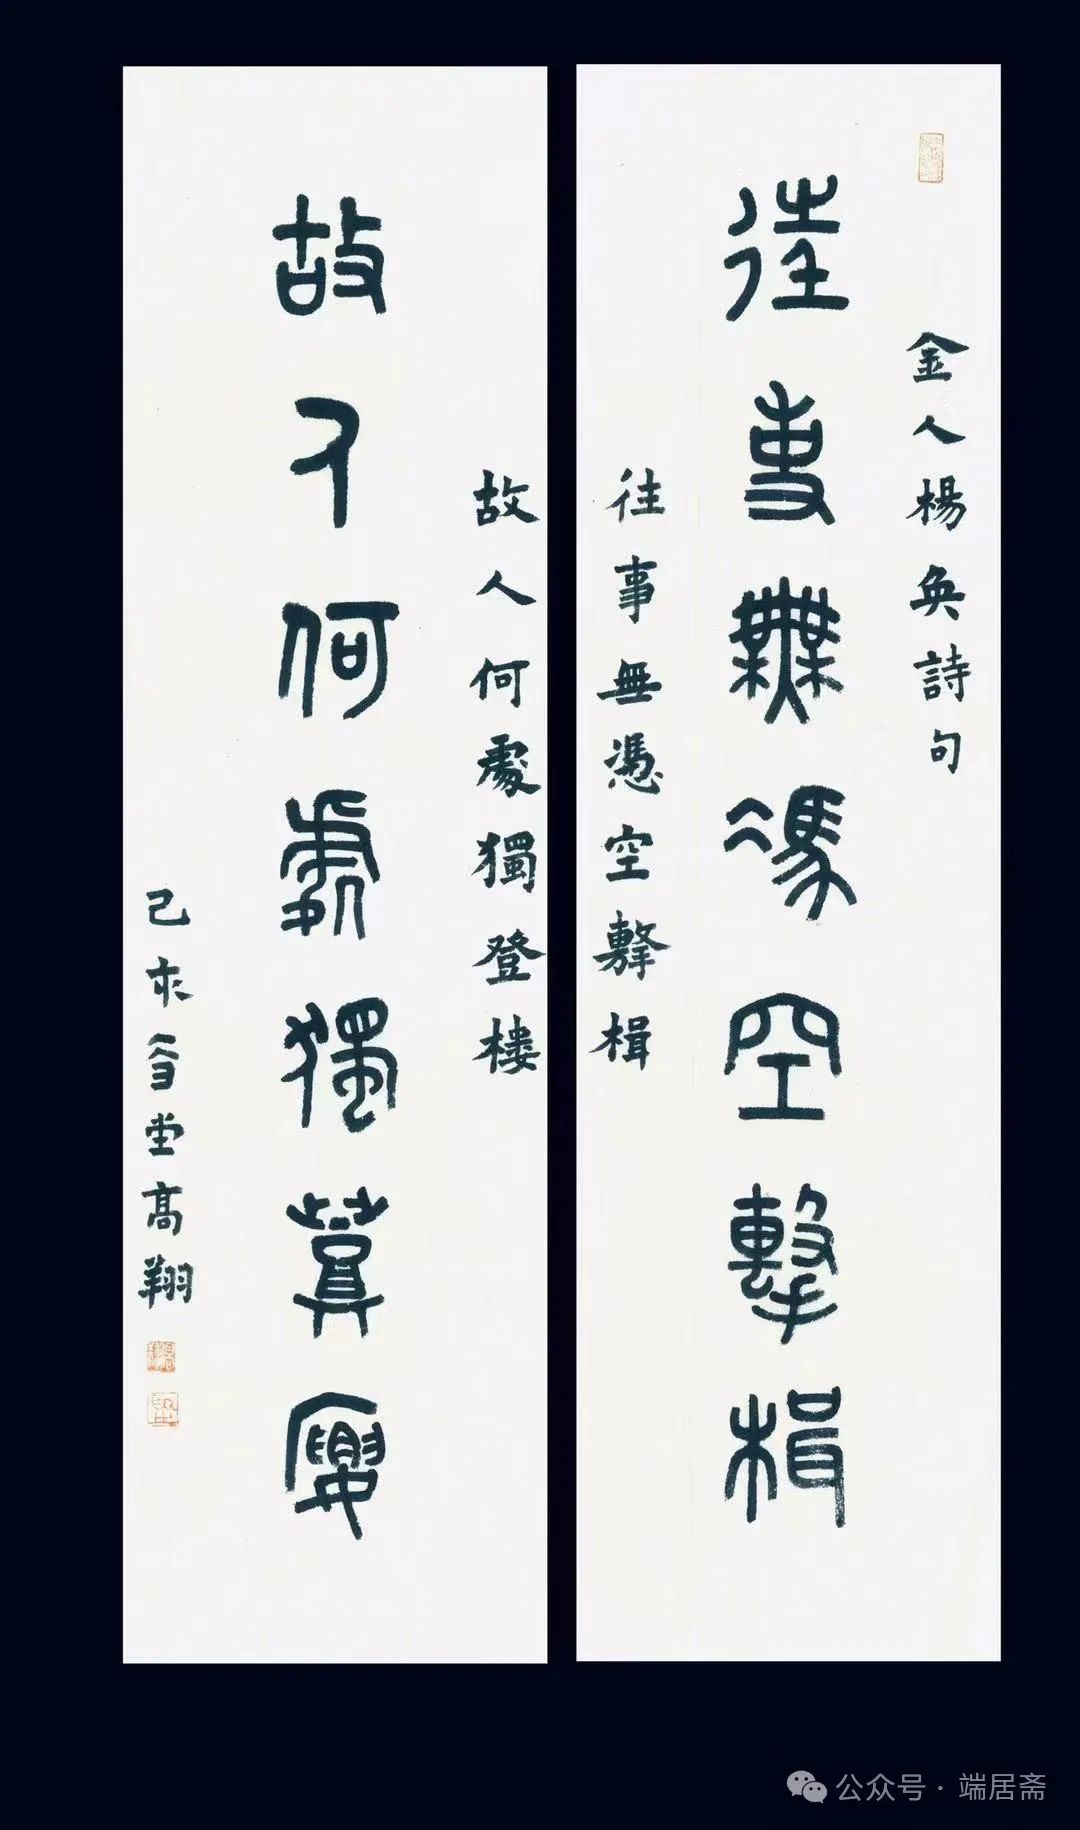 金人楊奐詩句
往事無馮空擊楫
往事無憑空擊楫
故人何處獨登樓
故人何處獨登樓
己亥
堂高翔
公众号·端居斋